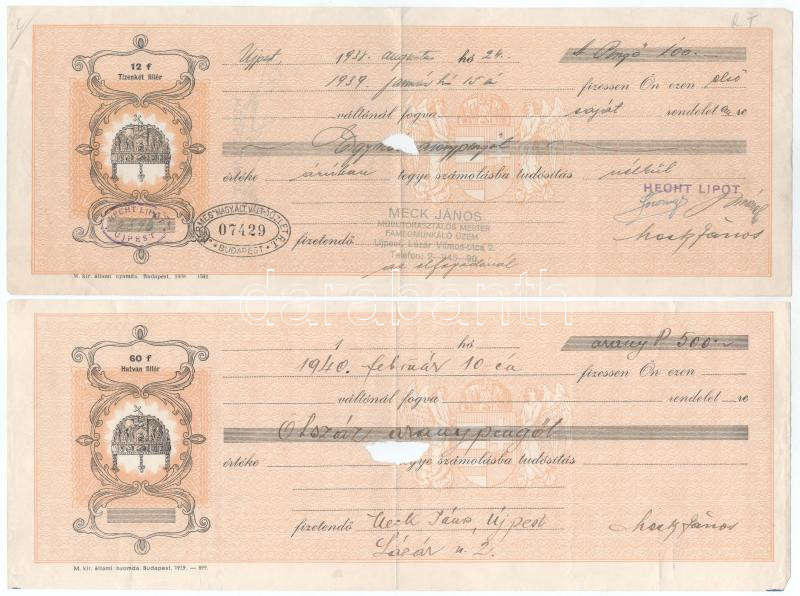 12 f
Tizenkét fillér
Ujpest, 1938. augusztus hó 24. Pengő 100.—
1939 január hó 15 á fizessen Ön ezen első
váltónál fogva saját rendelet re
értéke áruban tegye számolásba tudósítás nélkül
HECHT LIPÓT
HECHT LIPÓT
UJPEST
07429
BUDAPEST
MECK JÁNOS
MŰBUTORASZTALOS MESTER
FAMEGMUNKÁLÓ ÜZEM
Ujpest, Lázár Vilmos-utca 2.
Telefon: 2—945—90.
fizetendő az elfogadónál
Meck János
M. kir. állami nyomda. Budapest, 1938
darabanth
60 f
Hatvan fillér
1 hó arany P 500.—
1940. február 10 én fizessen Ön ezen
váltónál fogva rendelet re
Ötszáz aranypengőt
értéke tegye számolásba tudósítás
fizetendő Meck János, Ujpest
Lázár u. 2.
Meck János
M. kir. állami nyomda. Budapest, 1939.